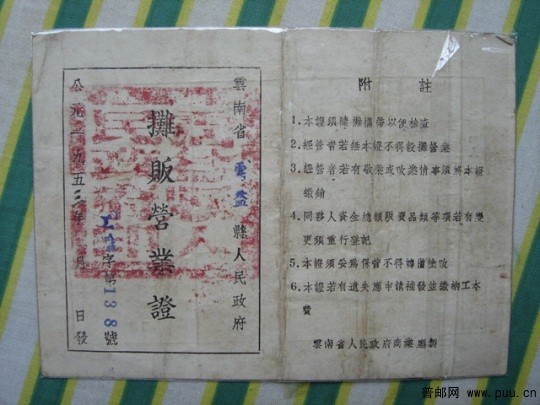 雲南省 霑益 縣人民政府
攤販營業證
工商字第138號
公元一九五三年 月 日發
附註
1. 本證須隨攤攜帶以便檢查
2. 經營者若無本證不得設攤營業
3. 經營者若有歇業或改業情事須將本證
繳銷
4. 同夥人資金總額販賣品類等項若有變
更須重行登記
5. 本證須妥為保管不得塗改
6. 本證若有遺失應申請補發並繳納工本
費
雲南省人民政府商業廳製
普邮网 www.puu.cn